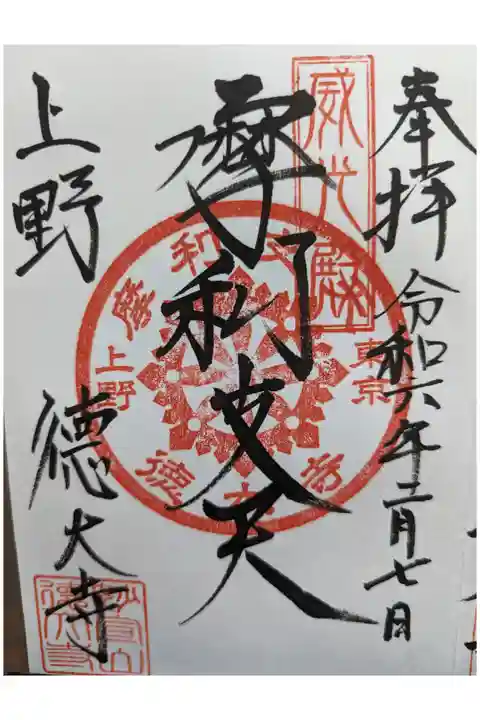 奉拝 令和六年二月七日
威光殿
摩利支天
東京
上野
徳大寺
上野 徳大寺
妙宣山
徳大寺